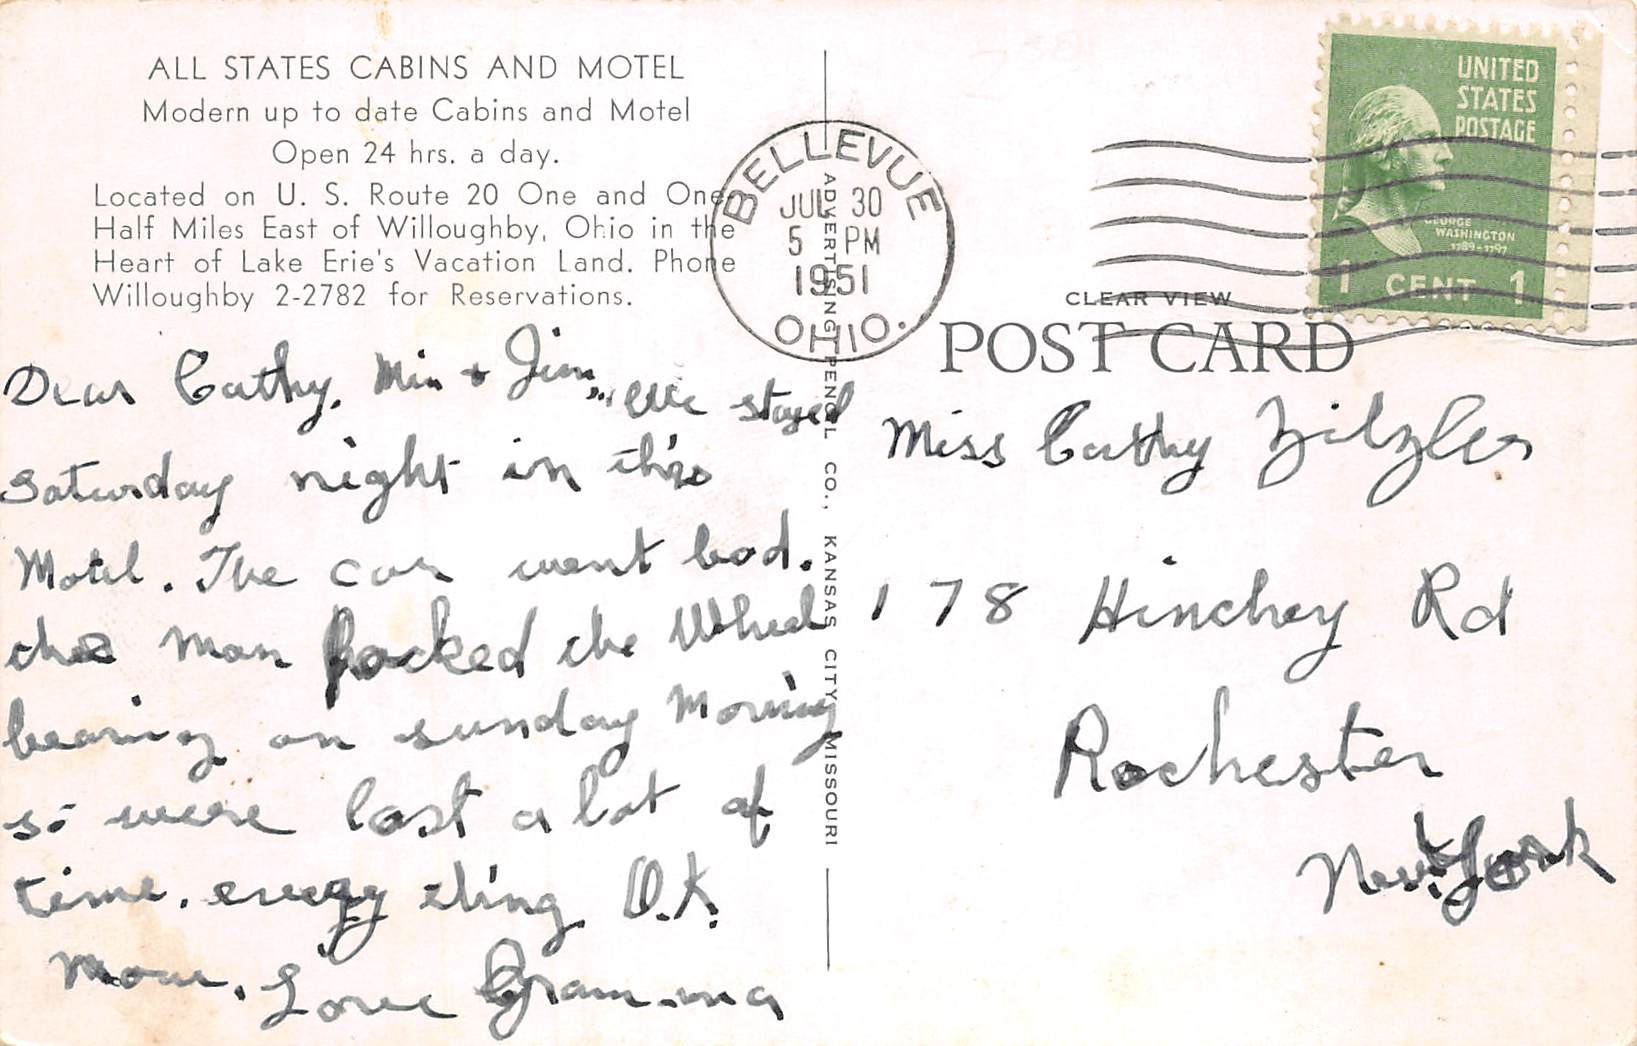 ALL STATES CABINS AND MOTEL
Modern up to date Cabins and Motel
Open 24 hrs. a day.
Located on U. S. Route 20 One and One
Half Miles East of Willoughby, Ohio in the
Heart of Lake Erie's Vacation Land. Phone
Willoughby 2-2782 for Reservations.
Dear Cathy, Min + Jim, We stayed
saturday night in this
Motel. The car went bad.
the man packed the Wheel
bearing on sunday Morning
so were lost a lot of
time. everything O.K.
Now. Love Gramma
ADVERTISING PENCIL CO., KANSAS CITY, MISSOURI
BELLEVUE
JUL 30
5 PM
1951
OHIO.
UNITED
STATES
POSTAGE
GEORGE
WASHINGTON
1789-1797
1 CENT 1
CLEAR VIEW
POST CARD
Miss Cathy
178 Hinchey Rd
Rochester
New York